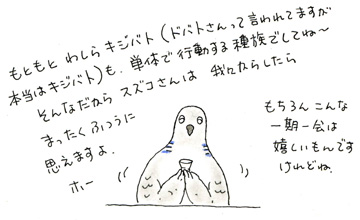 もともと わしら キジバト (ドバトさんって言われてますが
本当はキジバト)も、単体で行動する種族でしてね〜
そんなだから スズコさんは 我々からしたら
まったくふつうに
思えますよ。
ホー
もちろんこんな
一期一会は
嬉しいもんです
けれどね。